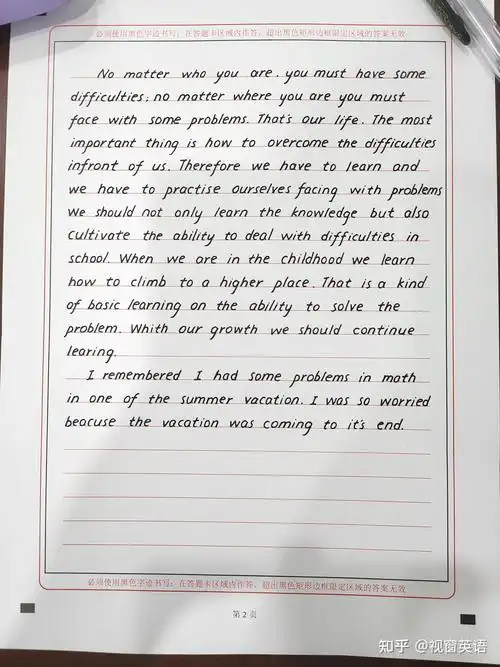 必须使用黑色字迹书写;在答题卡区域内作答,超出黑色矩形边框限定区域的答案无效
No matter who you are. you must have some
difficulties; no matter where you are you must
face with some problems. That's our life. The most
important thing is how to overcome the difficulties
infront of us. Therefore we have to learn and
we have to practise ourselves facing with problems
We should not only learn the knowledge but also
cultivate the ability to deal with difficulties in
school. When we are in the childhood we learn
how to climb to a higher place. That is a kind
of basic learning on the ability to solve the
problem. Whith our growth we should continue
learing.
I remembered I had some problems in math
in one of the summer vacation. I was so worried
beacuse the vacation was coming to it's end.
必须使用黑色字迹书写;在答题卡区域内作答,超出黑色矩形边框限定区域的答案无效
第 2 页
知乎 @视窗英语